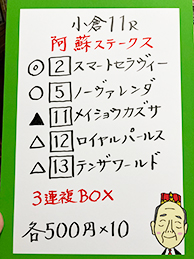 小倉11R
阿蘇ステークス
◎ 2 スマートセラヴィー
○ 5 ノーヴァレンダ
▲ 11 メイショウカズサ
△ 12 ロイヤルパールス
△ 13 テンザワールド
3連複BOX
各500円×10